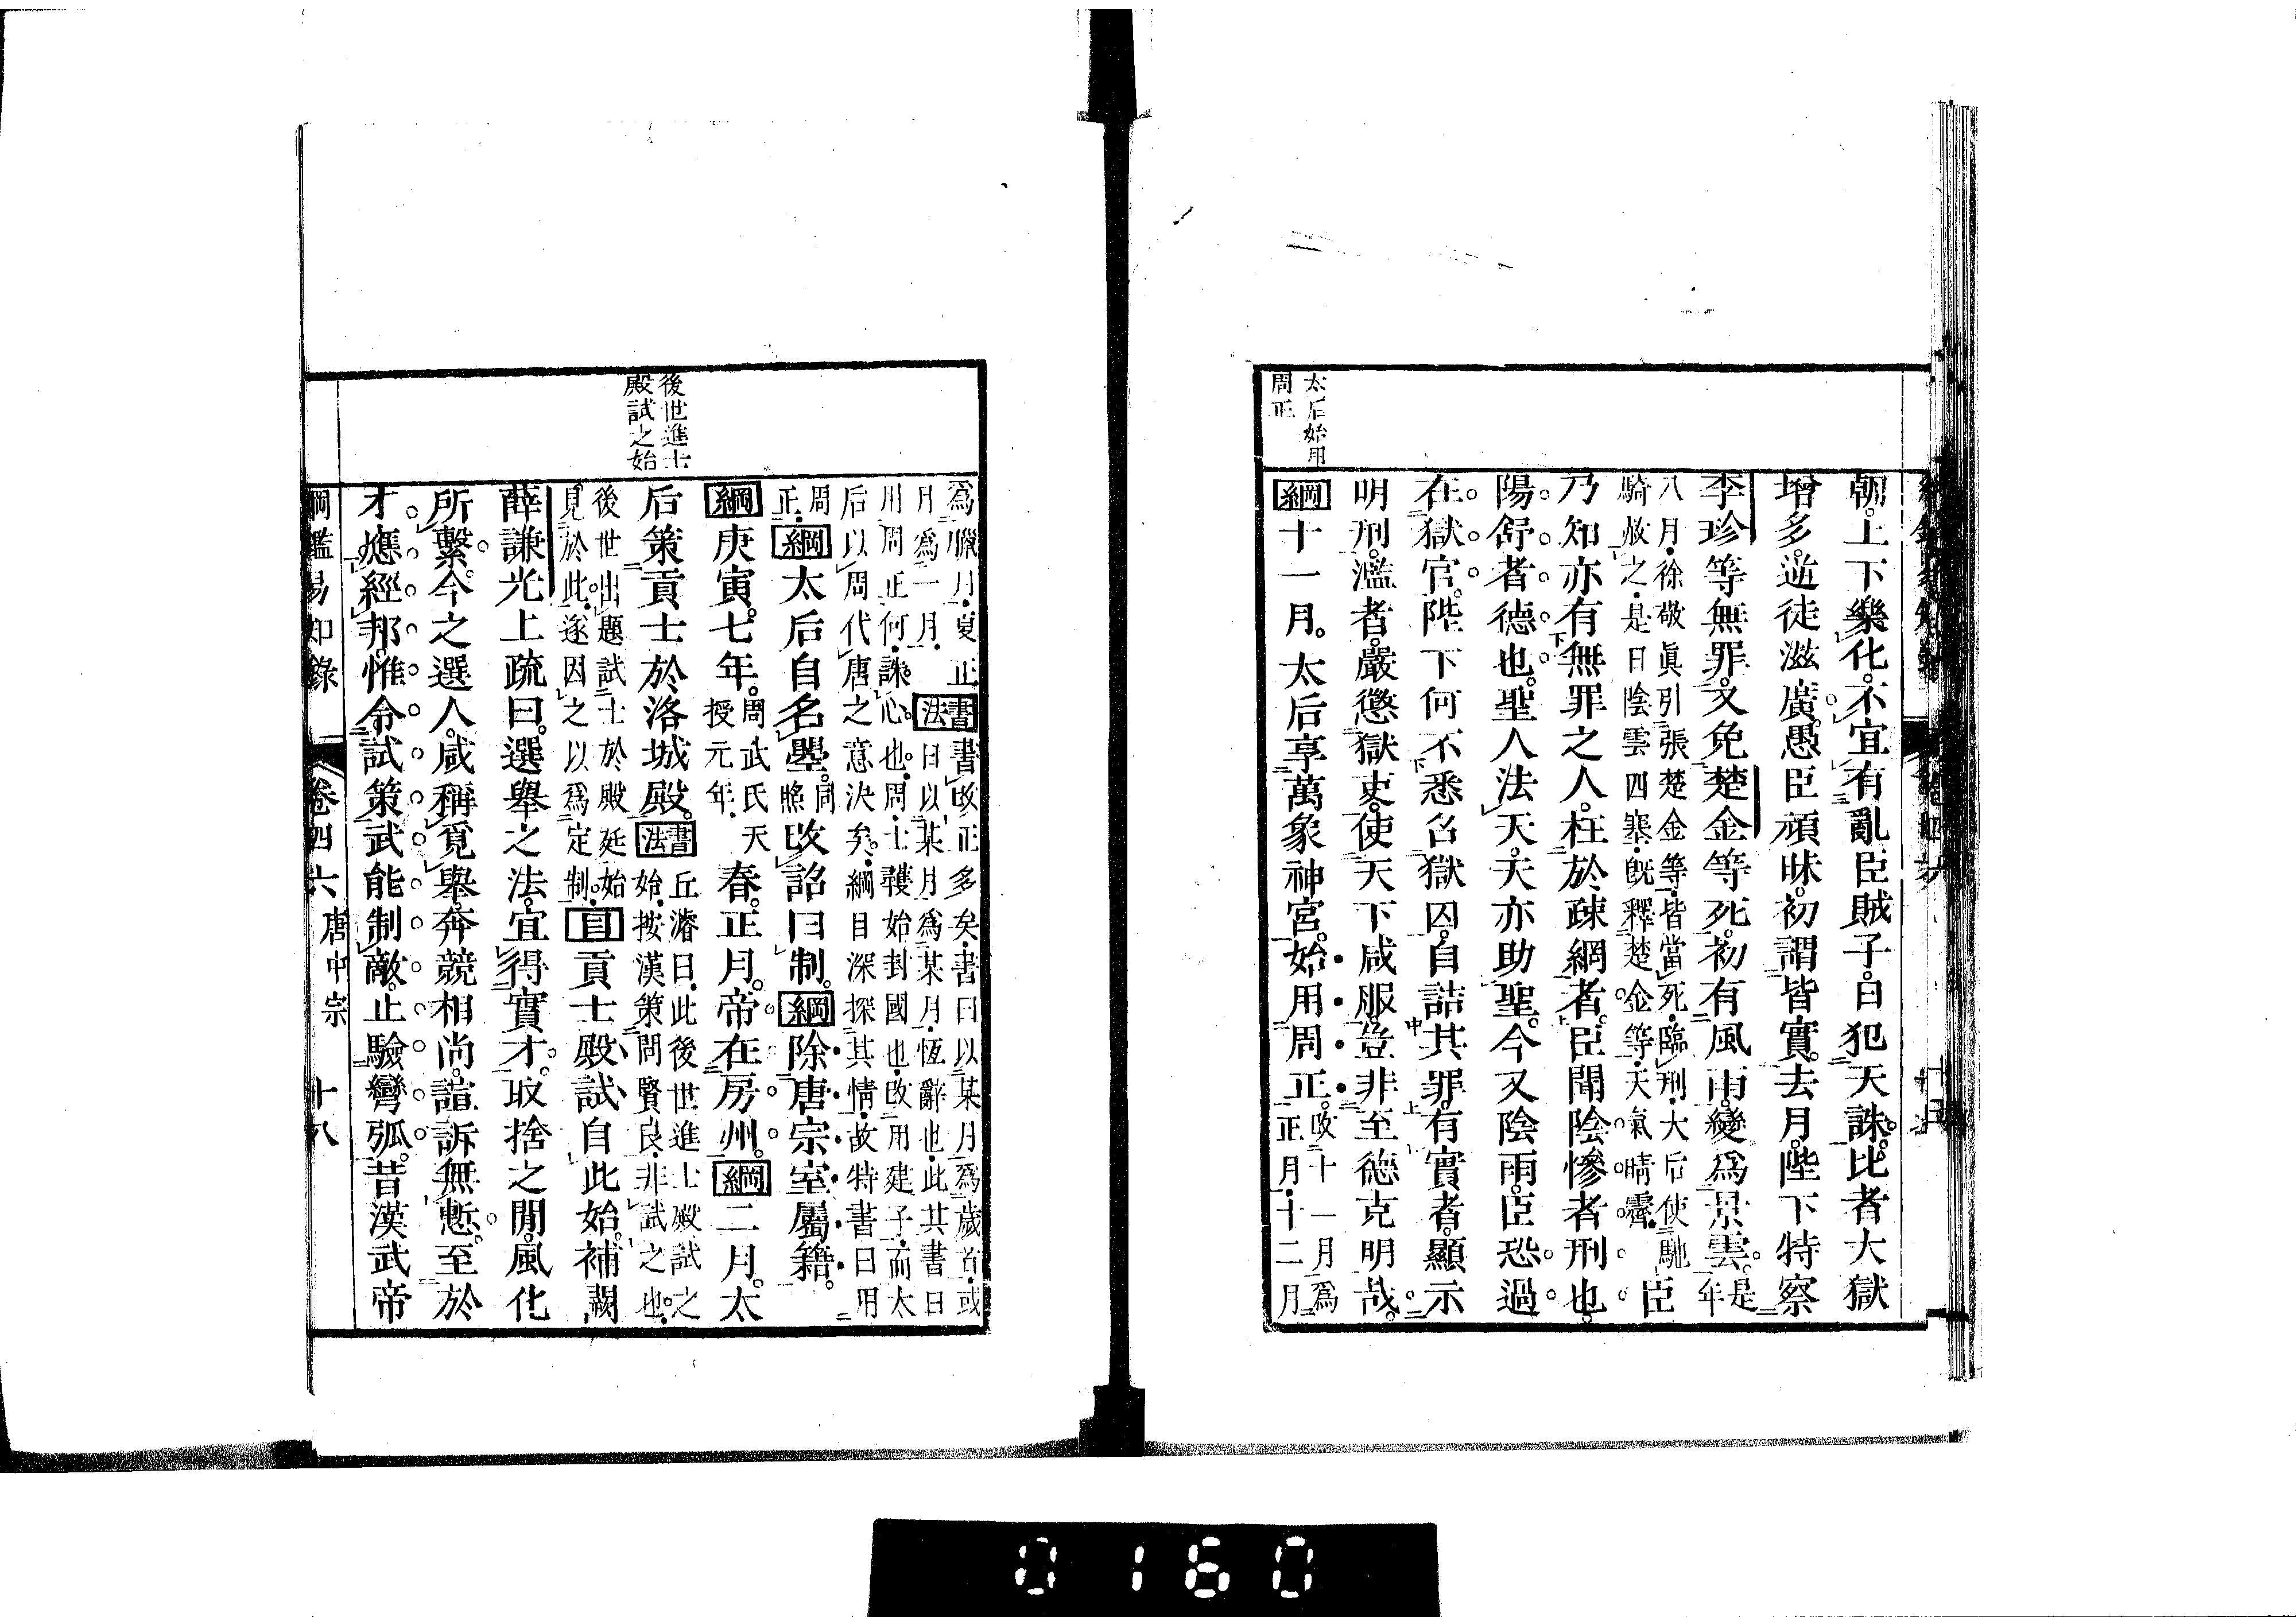 太后始用
周正
朝。上下樂化。不宜有亂臣賊子。日犯天誅。比者大獄
增多。逆徒滋廣。愚臣頑昧。初謂皆實。去月。陛下特察
李珍等無罪。又免楚金等死。初有風雨。變爲景雲。是年
八月。徐敬眞引張楚金等。皆當死。臨刑。太后使馳
騎赦之。是日陰雲四塞。旣釋楚金等。天氣晴霽。臣
乃知亦有無罪之人。枉於疎網者。臣聞陰慘者刑也。
陽舒者德也。聖人法天。天亦助聖。今又陰雨。臣恐過
在獄官。陛下何不悉召獄囚。自詰其罪。有實者。顯示
明刑。濫者。嚴懲獄吏。使天下咸服。豈非至德克明哉。
綱十一月。太后享萬象神宮。始用周正。改十一月爲
正月。十二月
後世進士
殿試之始
爲臘月。夏正書書改正多矣。書曰以某月爲歲首。或
月爲一月。法曰以某月爲某月。恆辭也。此其書曰
用周正何。誅心也。周。士頀始封國也。改用建子。而太
后以周代唐之意決矣。綱目深探其情。故特書曰用
周
正。綱太后自名曌。同照改詔曰制。綱除唐宗室屬籍。
綱庚寅。七年。周武氏天授元年。春。正月。帝在房州。綱二月。太
后策貢士於洛城殿。書法丘濬曰。此後世進士殿試之始。按漢策問賢良。非試之也。
後世出題試士於殿廷始
見於此。遂因之以爲定制。目貢士殿試自此始。補闕
薛謙光上疏曰。選舉之法。宜得實才。取捨之閒。風化
所繫。今之選人。咸稱覓舉。奔競相尚。諠訴無慙。至於
才應經邦。惟令試策。武能制敵。止驗彎弧。昔漢武帝
綱鑑易知錄
卷四六
唐中宗
十八
0160